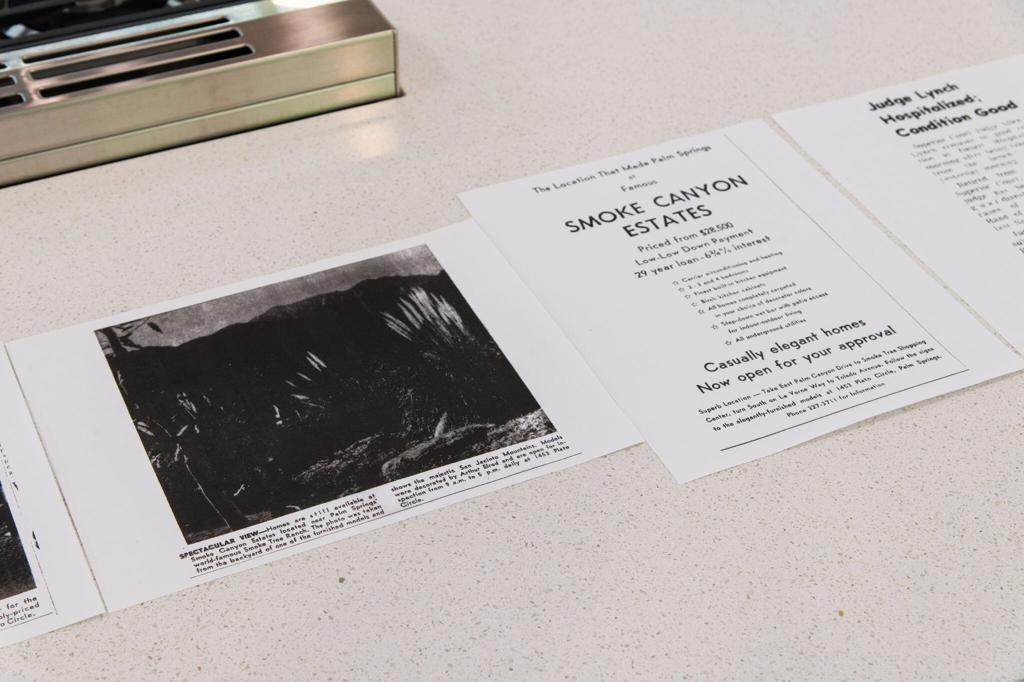 for the
bly-priced
o Circle.
SPECTACULAR VIEW—Homes are still available at
Smoke Canyon Estates located near Palm Springs'
world-famous Smoke Tree Ranch. The photo was taken
from the backyard of one of the furnished models and
shows the majestic San Jacinto Mountains. Models
were decorated by Arthur Elrod and are open for in-
spection from 9 a.m. to 5 p.m. daily at 1453 Plato
Circle.
The Location That Made Palm Springs
Famous
SMOKE CANYON
ESTATES
Priced from $28,500
Low-Low Down Payment
29 year loan-6¾% interest
☆ Carrier airconditioning and heating
☆ 2 - 3 and 4 bedrooms
☆ Finest built-in kitchen equipment
☆ Birch kitchen cabinets
☆ All homes completely carpeted
in your choice of decorator colors
☆ Step-down wet bar with patio access
for indoor-outdoor living
☆ All underground utilities
Casually elegant homes
Now open for your approval
Superb Location — Take East Palm Canyon Drive to Smoke Tree Shopping
Center, turn South on La Verne Way to Toledo Avenue. Follow the signs
to the elegantly-furnished models at 1453 Plato Circle, Palm Springs.
Phone 327-3711 for Information
Judge Lynch
Hospitalized;
Condition Good